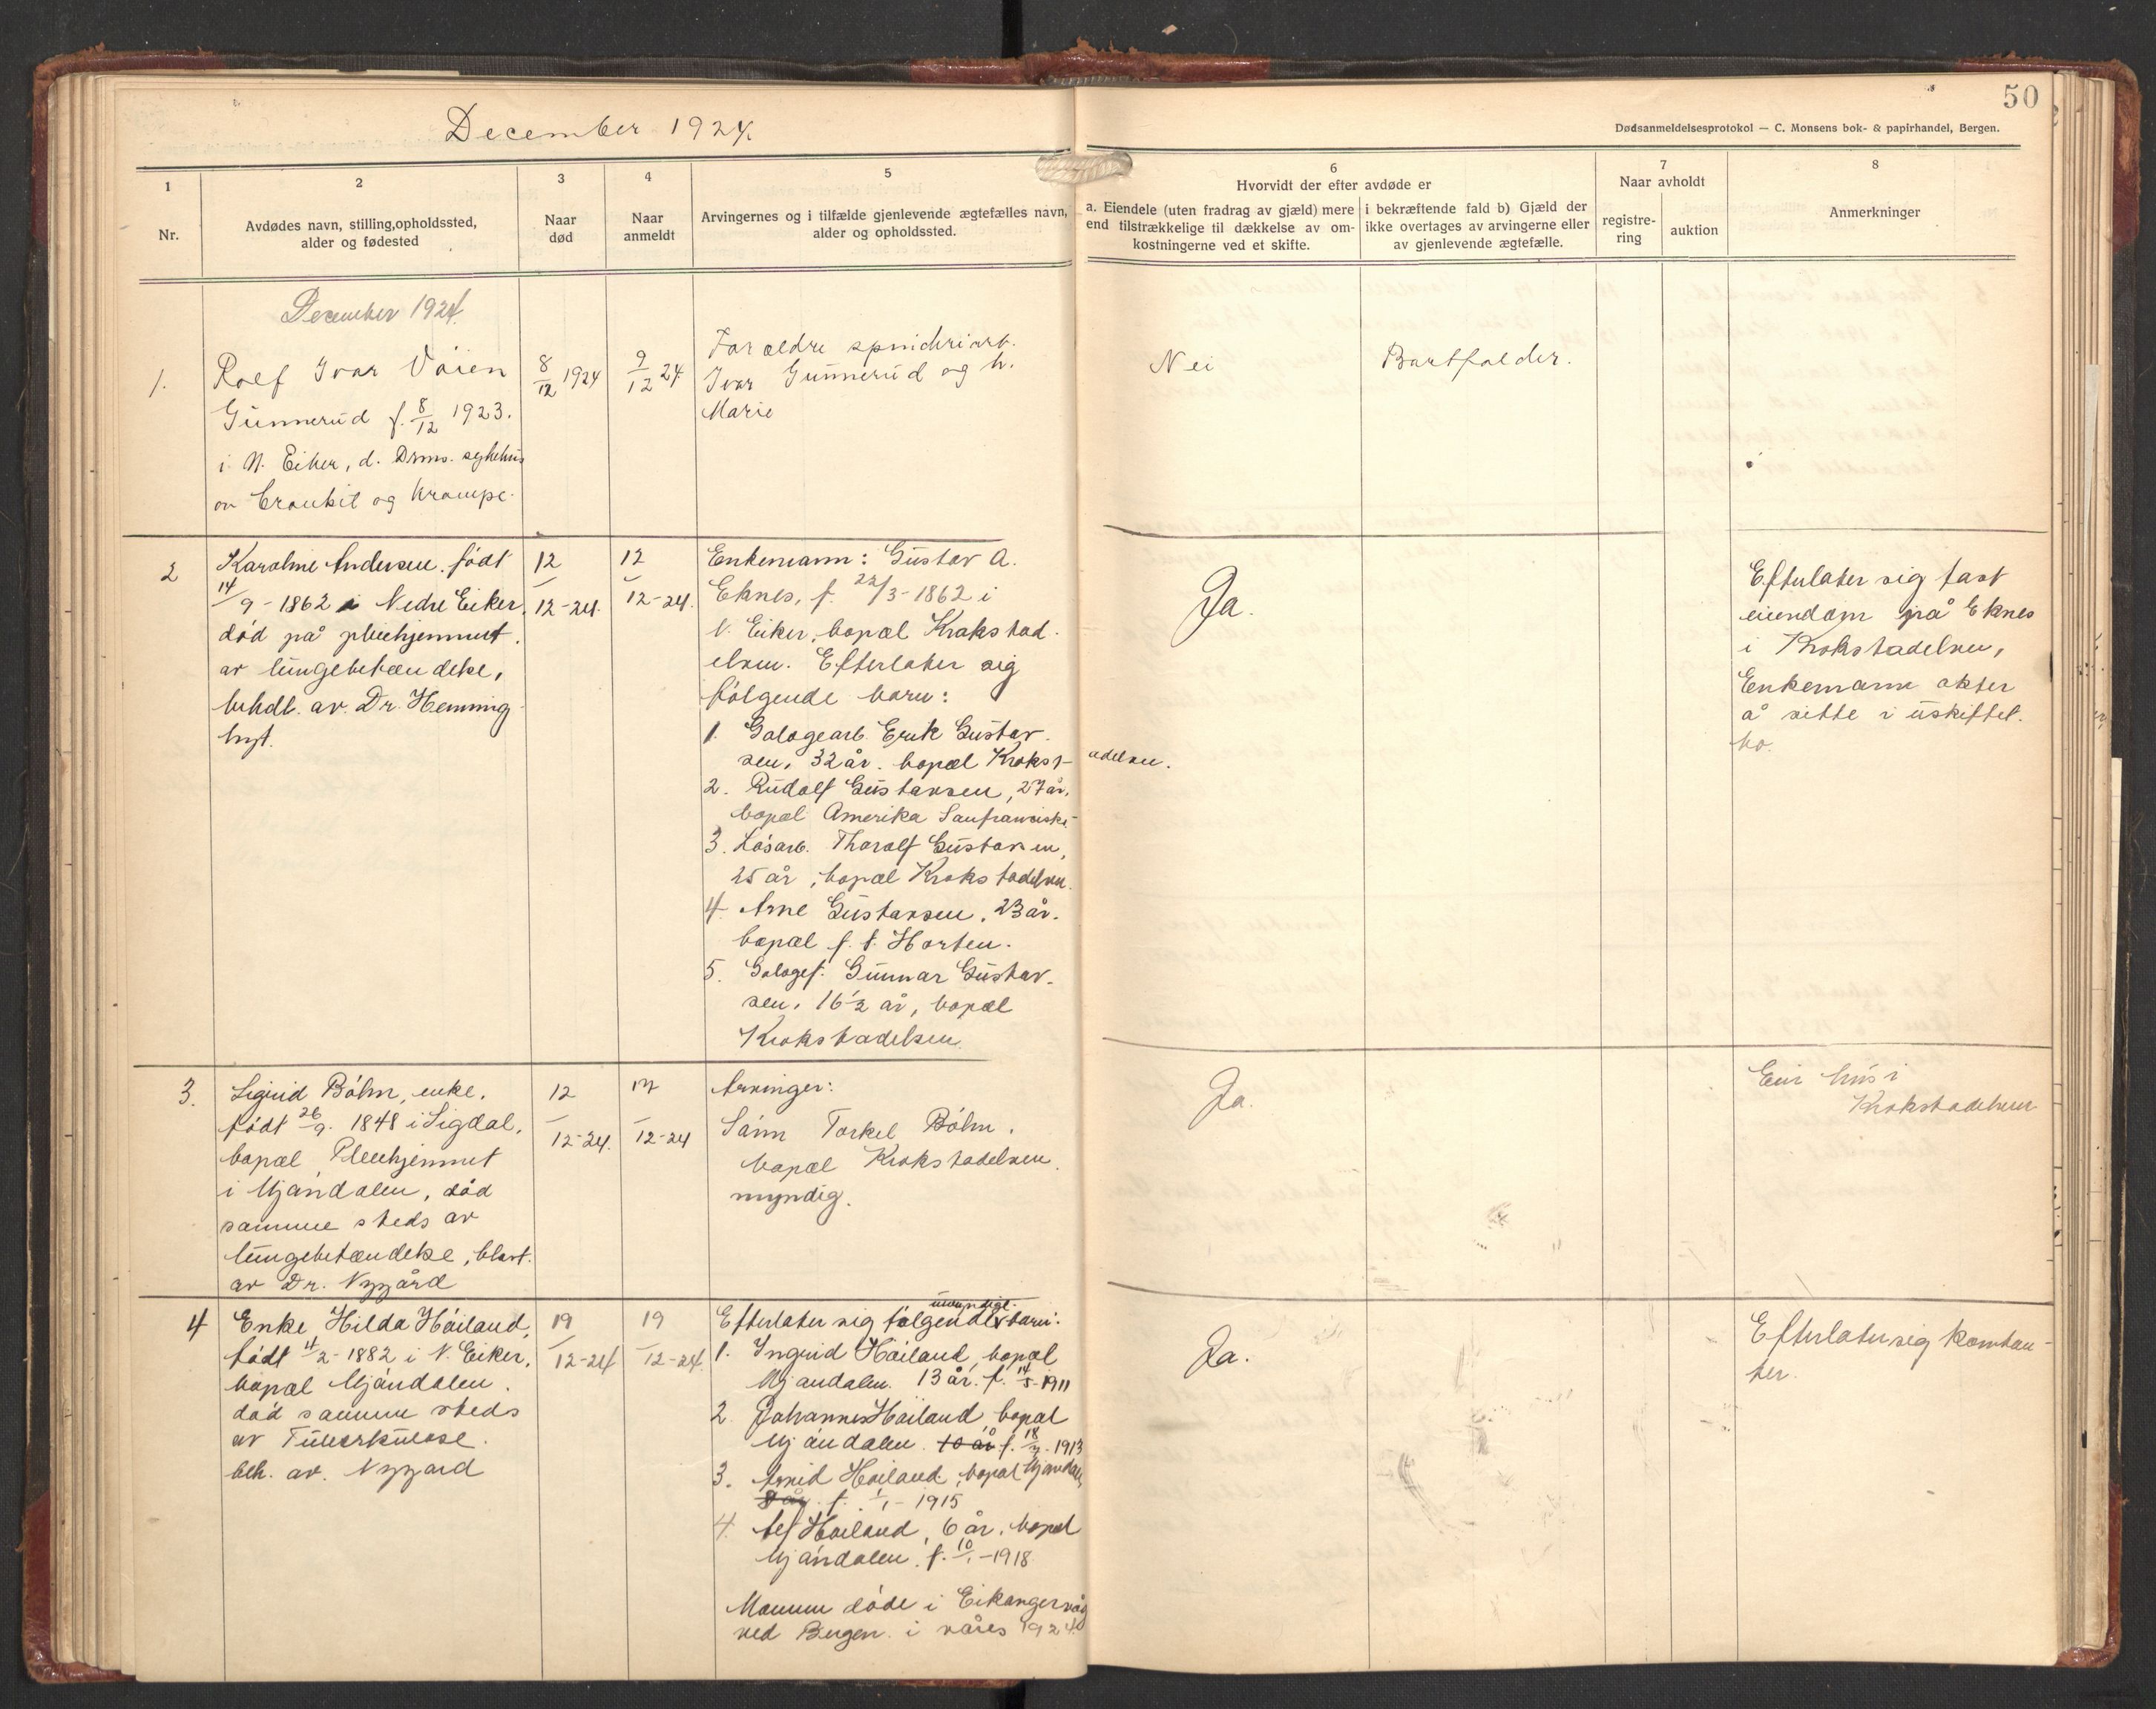 50
December 1924.
Dødsanmeldelsesprotokol — C. Monsens bok- & papirhandel, Bergen.
1
Nr.
2
Avdødes navn, stilling, opholdssted,
alder og fødested
3
Naar
død
4
Naar
anmeldt
5
Arvingernes og i tilfælde gjenlevende ægtefælles navn,
alder og opholdssted.
6
Hvorvidt der efter avdøde er
a. Eiendele (uten fradrag av gjæld) mere
end tilstrækkelige til dækkelse av om-
kostningerne ved et skifte.
i bekræftende fald b) Gjæld der
ikke overtages av arvingerne eller
av gjenlevende ægtefælle.
7
Naar avholdt
registre-
ring
auktion
8
Anmerkninger
December 1924.
1.
Rolf Ivar Våien
Gunnerud f. 8/12 1923.
i N. Eiker, d. Drms. sykehus
av Cronkit og Krampe.
8/12 1924
9/12 24.
Forældre
Ivar Gunnerud og h.
Marie
Nei
Bortfalder.
2
Karoline Andersen. født
14/9-1862 i Nedre Eiker,
død på pleiehjemmet.
av lungebetændelse,
behdl. av. Dr. Henning
12/12-24.
12/12-24.
Enkemann: Gustav A.
Eknes, f. 22/3-1862 i
N. Eiker, bopæl Krokstad-
elven. Efterlater sig
følgende barn:
1. Galogearb. Erik Gustav-
sen, 32 år. bopæl Krokst-
adelven.
2. Rudolf Gustavsen, 27 år,
bopæl Amerika Sanfrancisko
3. Løsarb. Thoralf Gustavsen,
25 år, bopæl Krokstadelven.
4. Arne Gustavsen, 23 år.
bopæl f. t. Horten.
5. Galogef. Gunnar Gustav-
sen, 16½ år, bopæl
Krokstadelven.
Ja.
Efterlater sig fast
eiendom på Eknes
i Krokstadelven,
Enkemann akter
å sitte i uskiftet
bo.
3.
Sigrid Bøhn, enke.
født 26/9. 1848 i Sigdal,
bopæl Pleiehjemmet
i Mjøndalen, død
samme steds av
lungebetændelse,
av Dr. Nygård
12/12-24.
12/12-24
Arvinger:
Sønn Torkel Bøhn.
bopæl Krokstadelven.
myndig.
Ja.
Eier hus i
Krokstadelven
4
Enke Hilda Høiland,
født 4/2-1882 i N. Eiker,
bopæl Mjøndalen.
død samme steds
av Tuberkulose.
beh. av. Nygård
19/12-24
19/12-24.
Efterlater sig følgende umyndige barn:
1. Ingrid Høiland, bopæl
Mjøndalen. 13 år. f. 14/5-1911
2. Johannes Høiland, bopæl
Mjøndalen. 10 år f. 18/7. 1913
3. Arvid Høiland, bopæl Mjøndalen
8 år. f. 1/1-1915
4. Alf Høiland, 6 år. bopæl
Mjøndalen. f. 10/1-1918
Mannen døde i Eikangervåg
ved Bergen i våres 1924.
Ja.
Efterlater sig kontan-
ter.